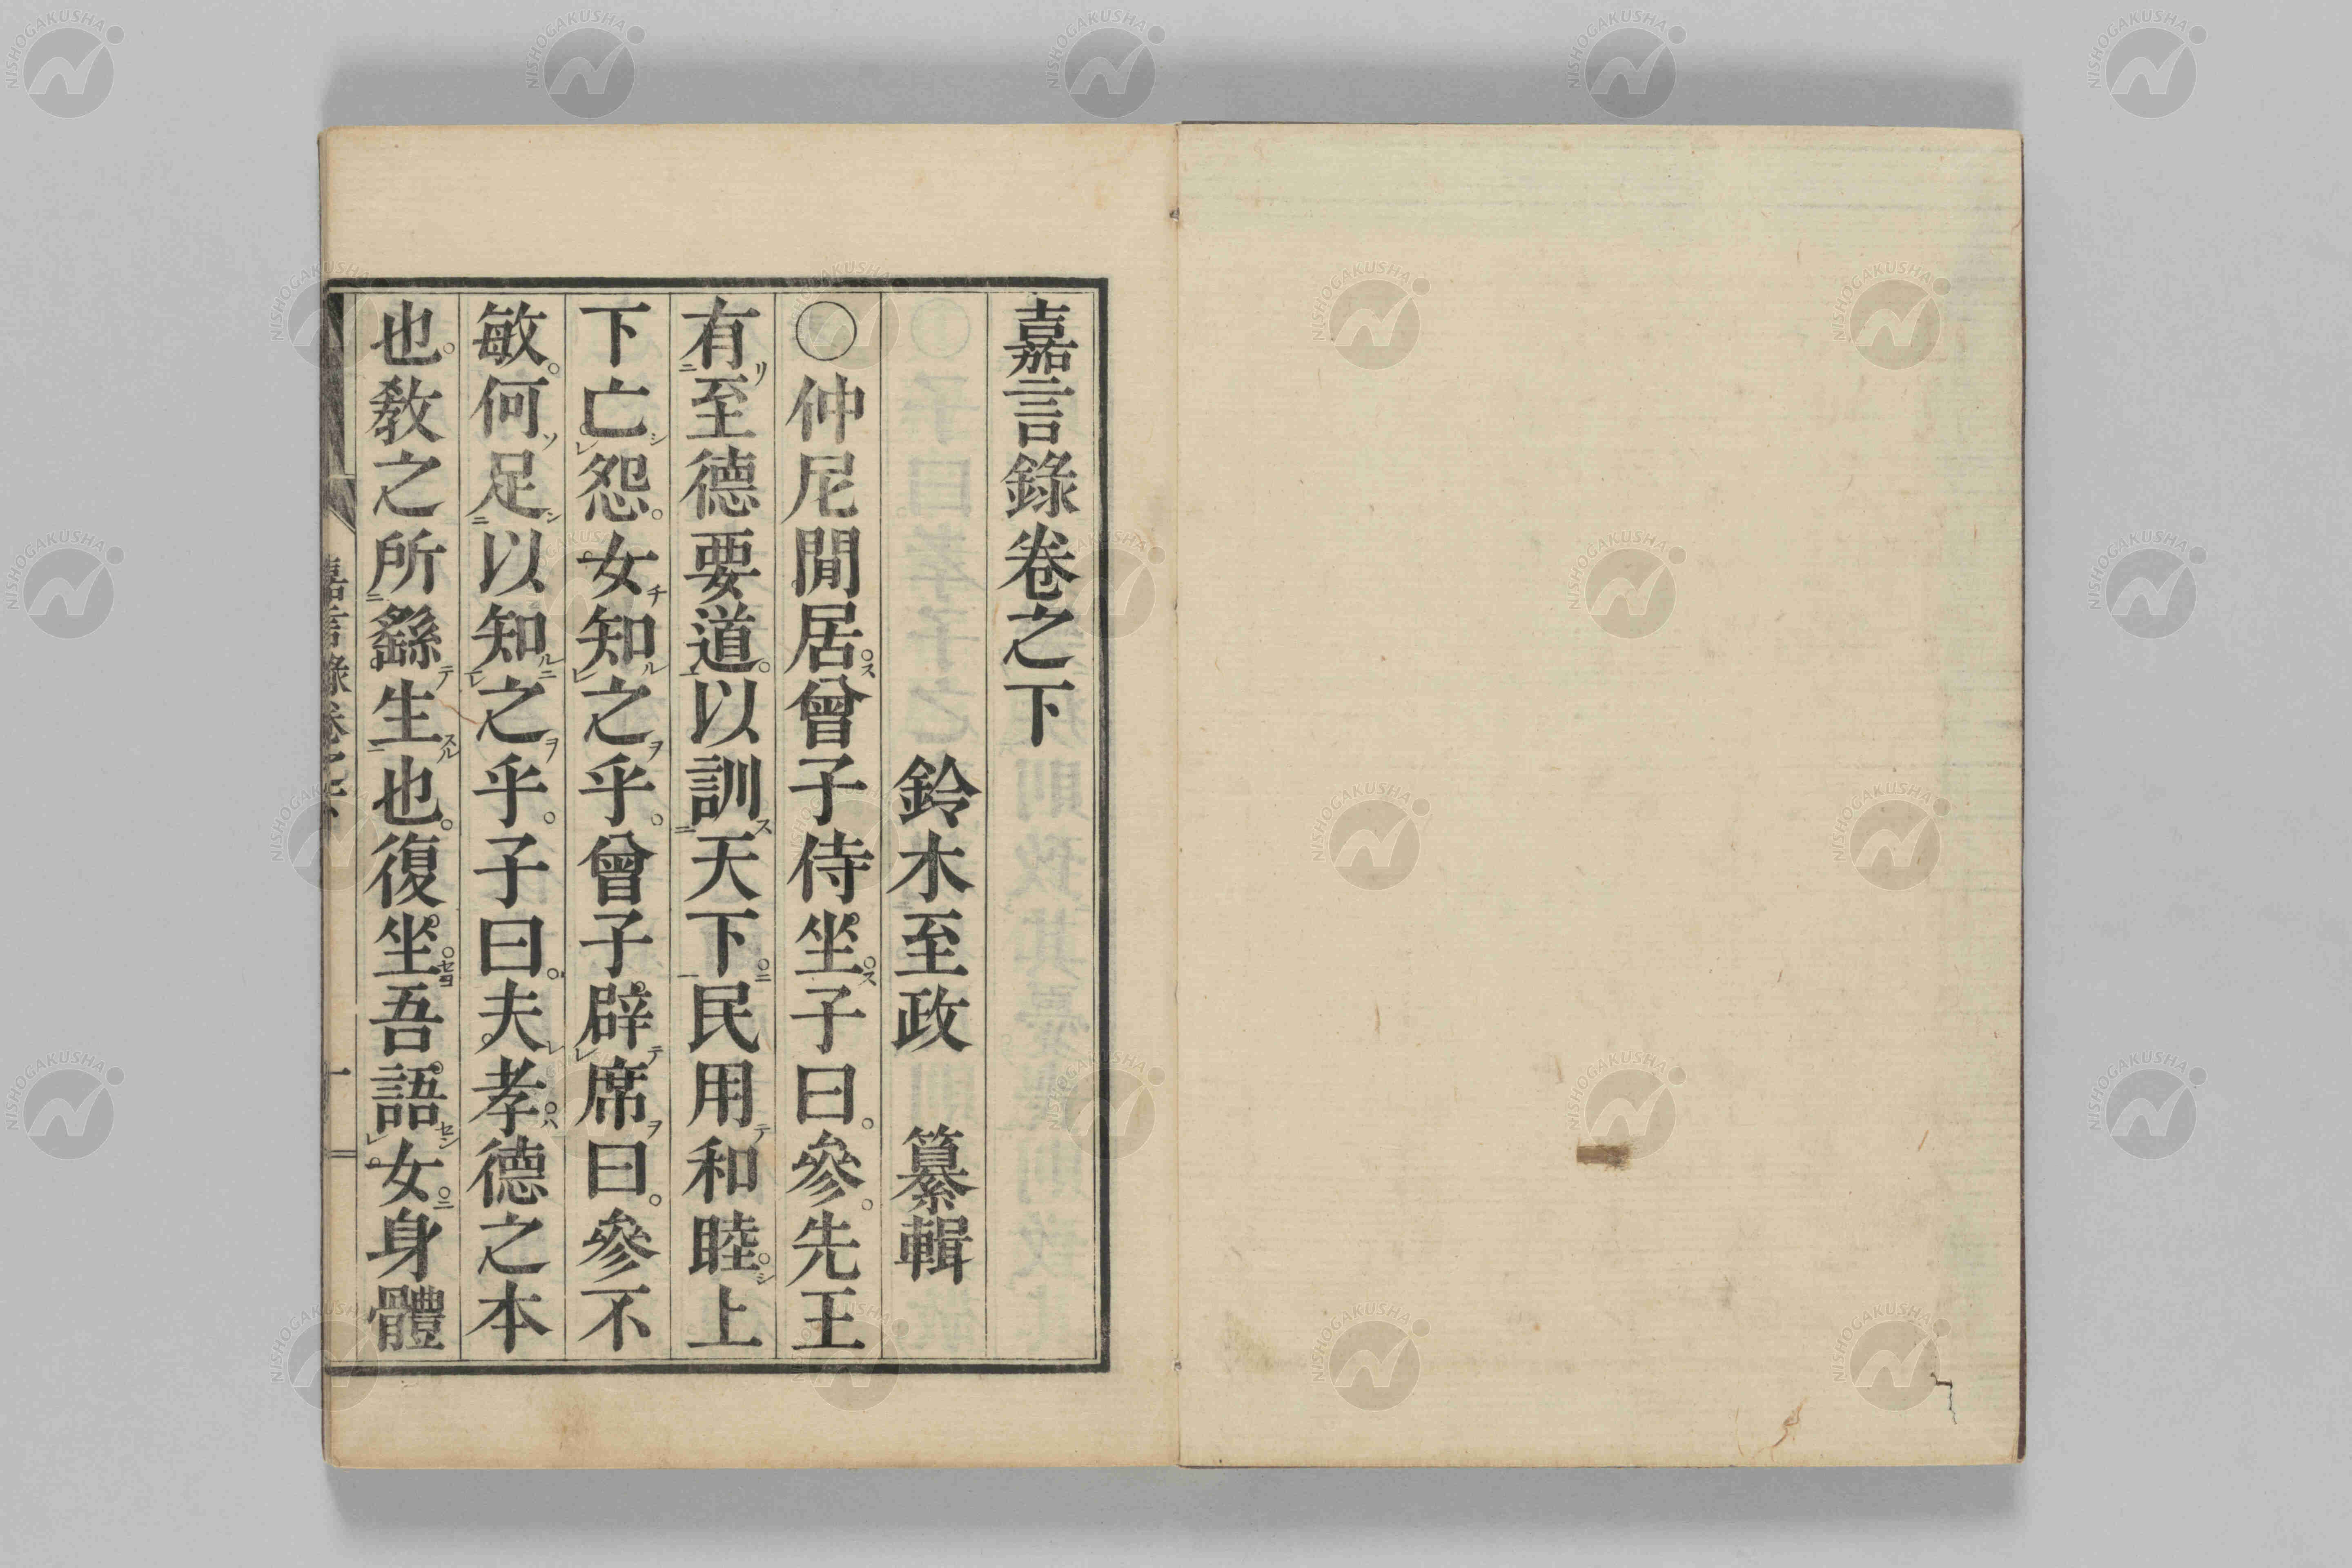 嘉言錄卷之下
鈴木至政 纂輯
○仲尼閒居曾子侍坐子曰參先王
有至德要道以訓天下民用和睦上
下亡怨女知之乎曾子辟席曰參不
敏何足以知之乎子曰夫孝德之本
也教之所繇生也復坐吾語女身體
嘉言錄卷之下
一
NISHOGAKUSHA